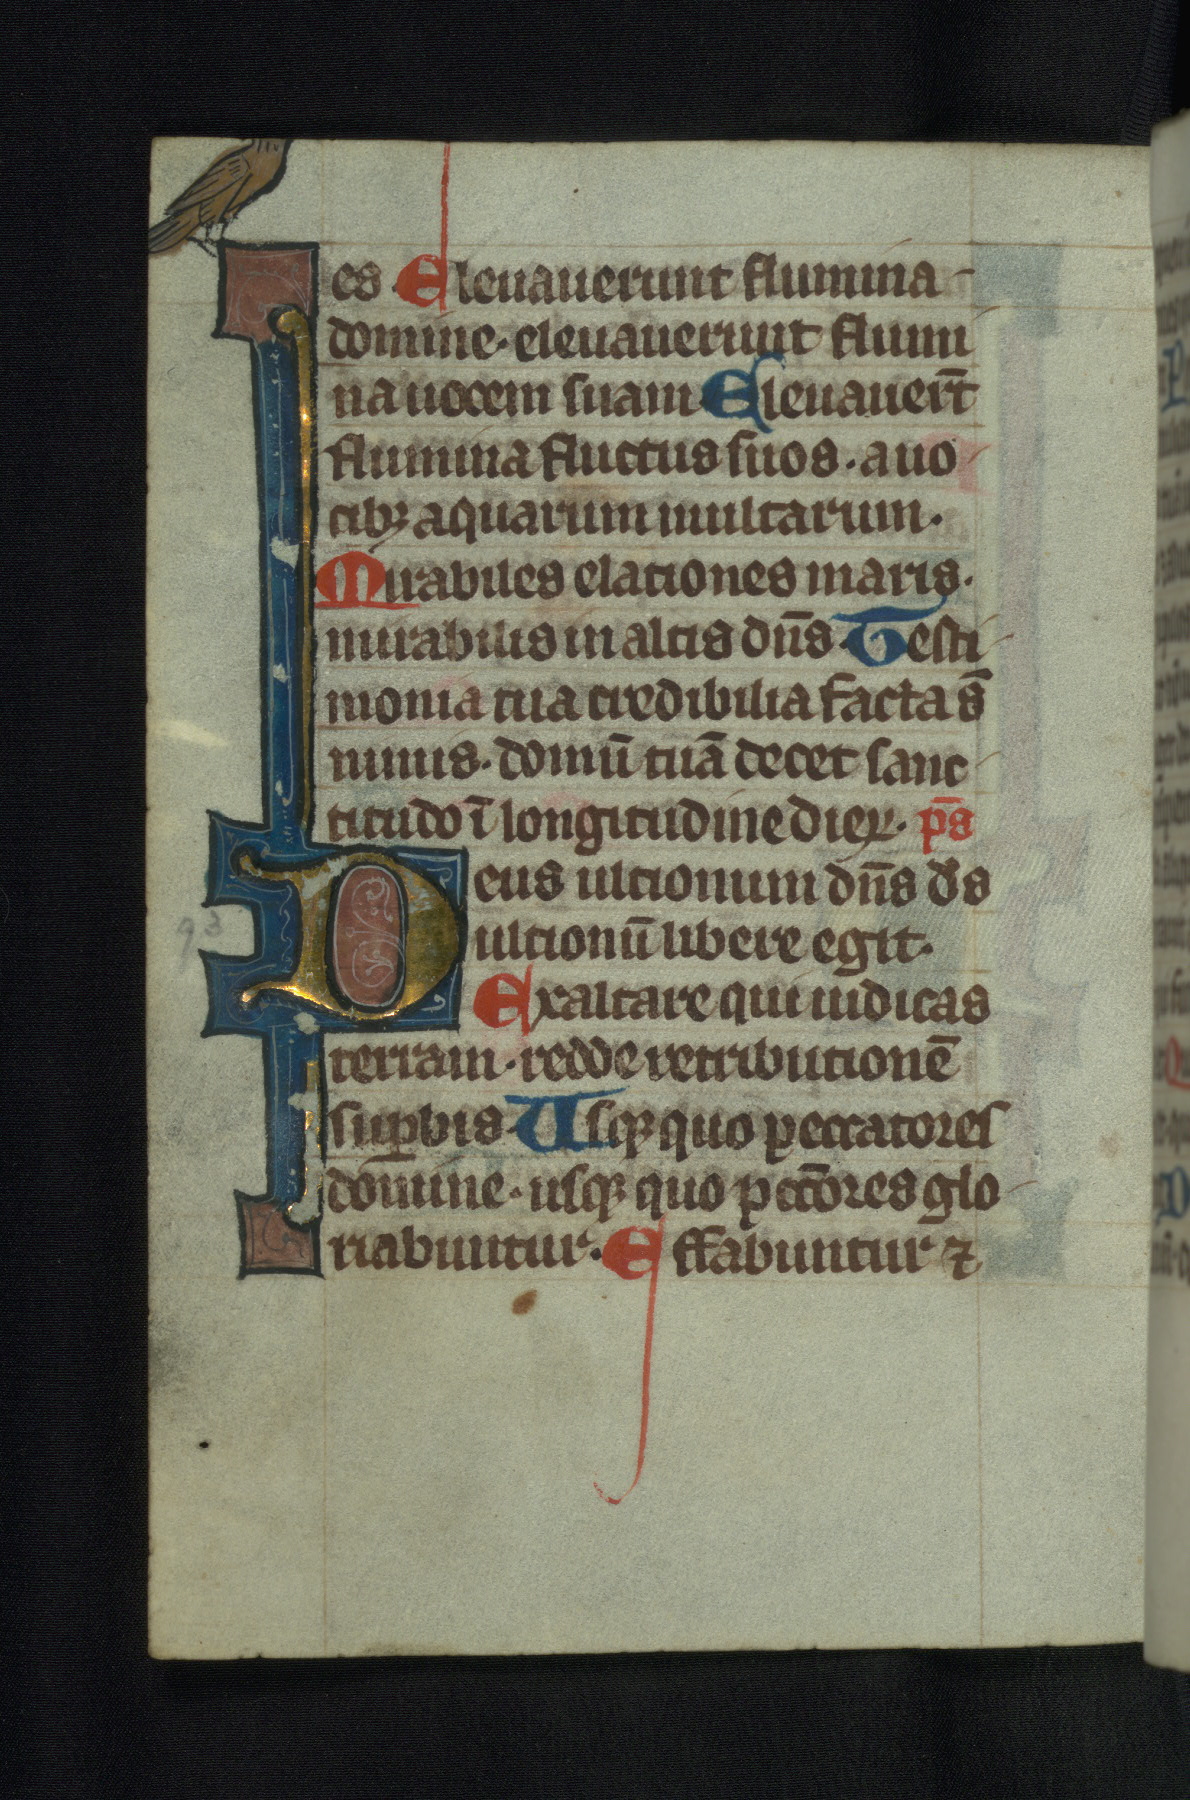 es. Eleuauerunt flumina
domine. eleuauerunt flumi
na uocem suam Eleuauer̄t
flumina fluctus suos. a uo
cibꝫ aquarum multarum.
Mirabiles elationes maris.
mirabilis in altis dn̄s. Testi
monia tua credibilia facta s̄
nimis. domū tuā decet sanc
titudo ī longitudine dieꝝ. ps̄
Deus ultionum dn̄s ds̄
ultionū libere egit.
Exaltare qui iudicas
terram. redde retributionē
suꝑbis. Usqꝫ quo peccatores
domine. usqꝫ quo pccōres glo
riabuntur. Effabuntur ⁊
93